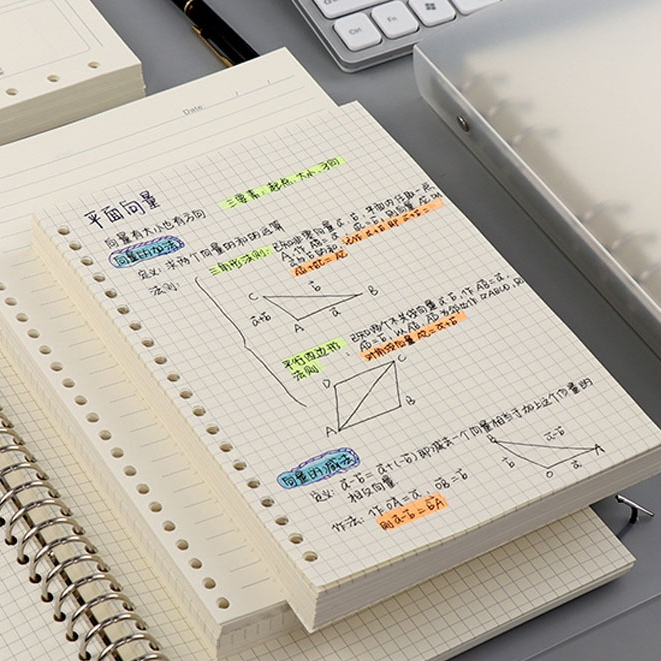 Ctrl
Fn
Date / /
平面向量
三要素：起点、大小、方向
向量有大小也有方向
向量的加法
定义：求两个向量的和的运算
法则：
三角形法则：已知非零向量a、b，平面内任取一点
A，作AB=a，BC=b，则向量AC叫
a与b的和
AB+BC=AC
C
b
B
a+b
A
a
平行四边形
法则
：已知两个不共线向量a、b，作AB=a，
AD=b，以AB、AD为邻边作▱ABCD，则
对角线向量AC=a+b
D
C
B
A
向量的减法
定义：a-b=a+(-b)即减去一个向量相当于加上这个向量的
相反向量
作法：作OA=a，OB=b
则a-b=BA
B
a-b
A
b
O
a